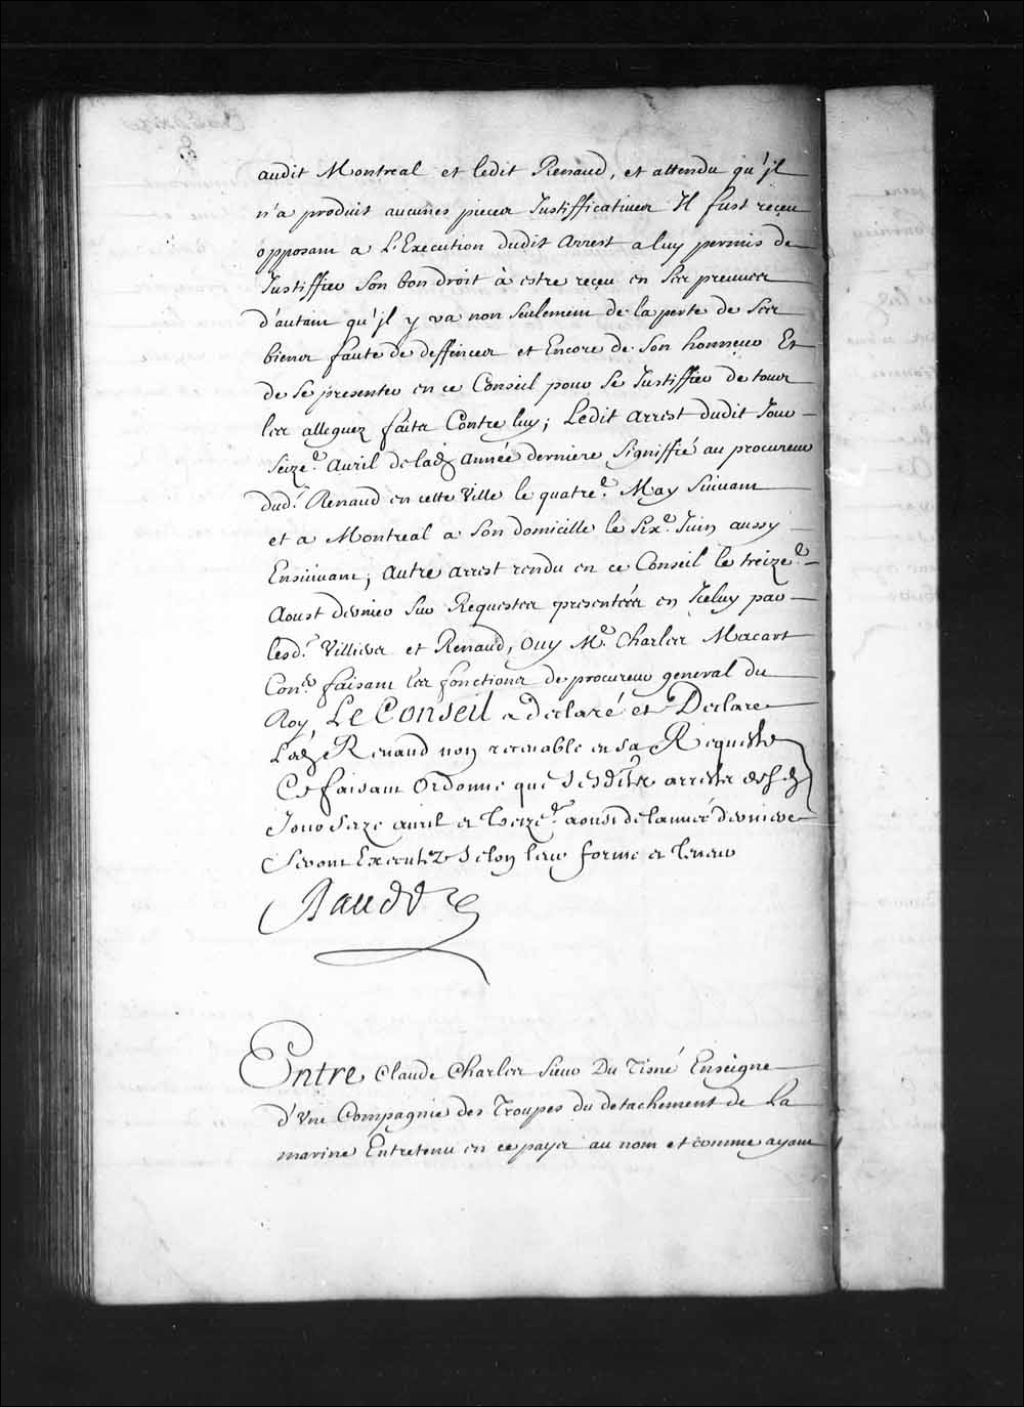 audit Montreal et ledit Renaud, et attendu qu'jl
n'a produit aucunes pieces Justifficatives Il fust reçeu
opposant a L'Execution dudit Arrest a luy permis de
Justiffier Son bon droit à estre reçeu en Ses preuves
d'autant qu'jl y va non Seulement de la perte de Ses
biens faute de deffences et Encore de Son honneur Et
de Se presenter en ce Conseil pour Se Justiffier de tous
les alleguez faits Contre luy; Ledit arrest dudit Jour
Seize.e Auril de lad Année derniere Signiffié au procureur
dud.t Renaud en cette Ville le quatre.e May Suiuant
et a Montreal a Son domicille le Six.e Juin aussy
Ensuiuant; Autre arrest rendu en ce Conseil le treize.e
Aoust dernier Sur Requestes presentées en Jceluy par
lesd.t Villiers et Renaud, Ouy M.e Charles Macart
Con.er faisant les fonctions de procureur general du
Roy, Le Conseil a declaré et Declare
Led Renaud non receuable en sa Requeste
Ce faisant Ordonne que Lesdits arrests desd
Jour Seize auril et treize.e aoust de lannée derniere
Seront Executez Selon leur forme et teneur
Entre Claude Charles Sieur Du Tisné Enseigne
d'Vne Compagnie des Troupes du detachement de La
marine Entretenu en ce pays au nom et comme ayant